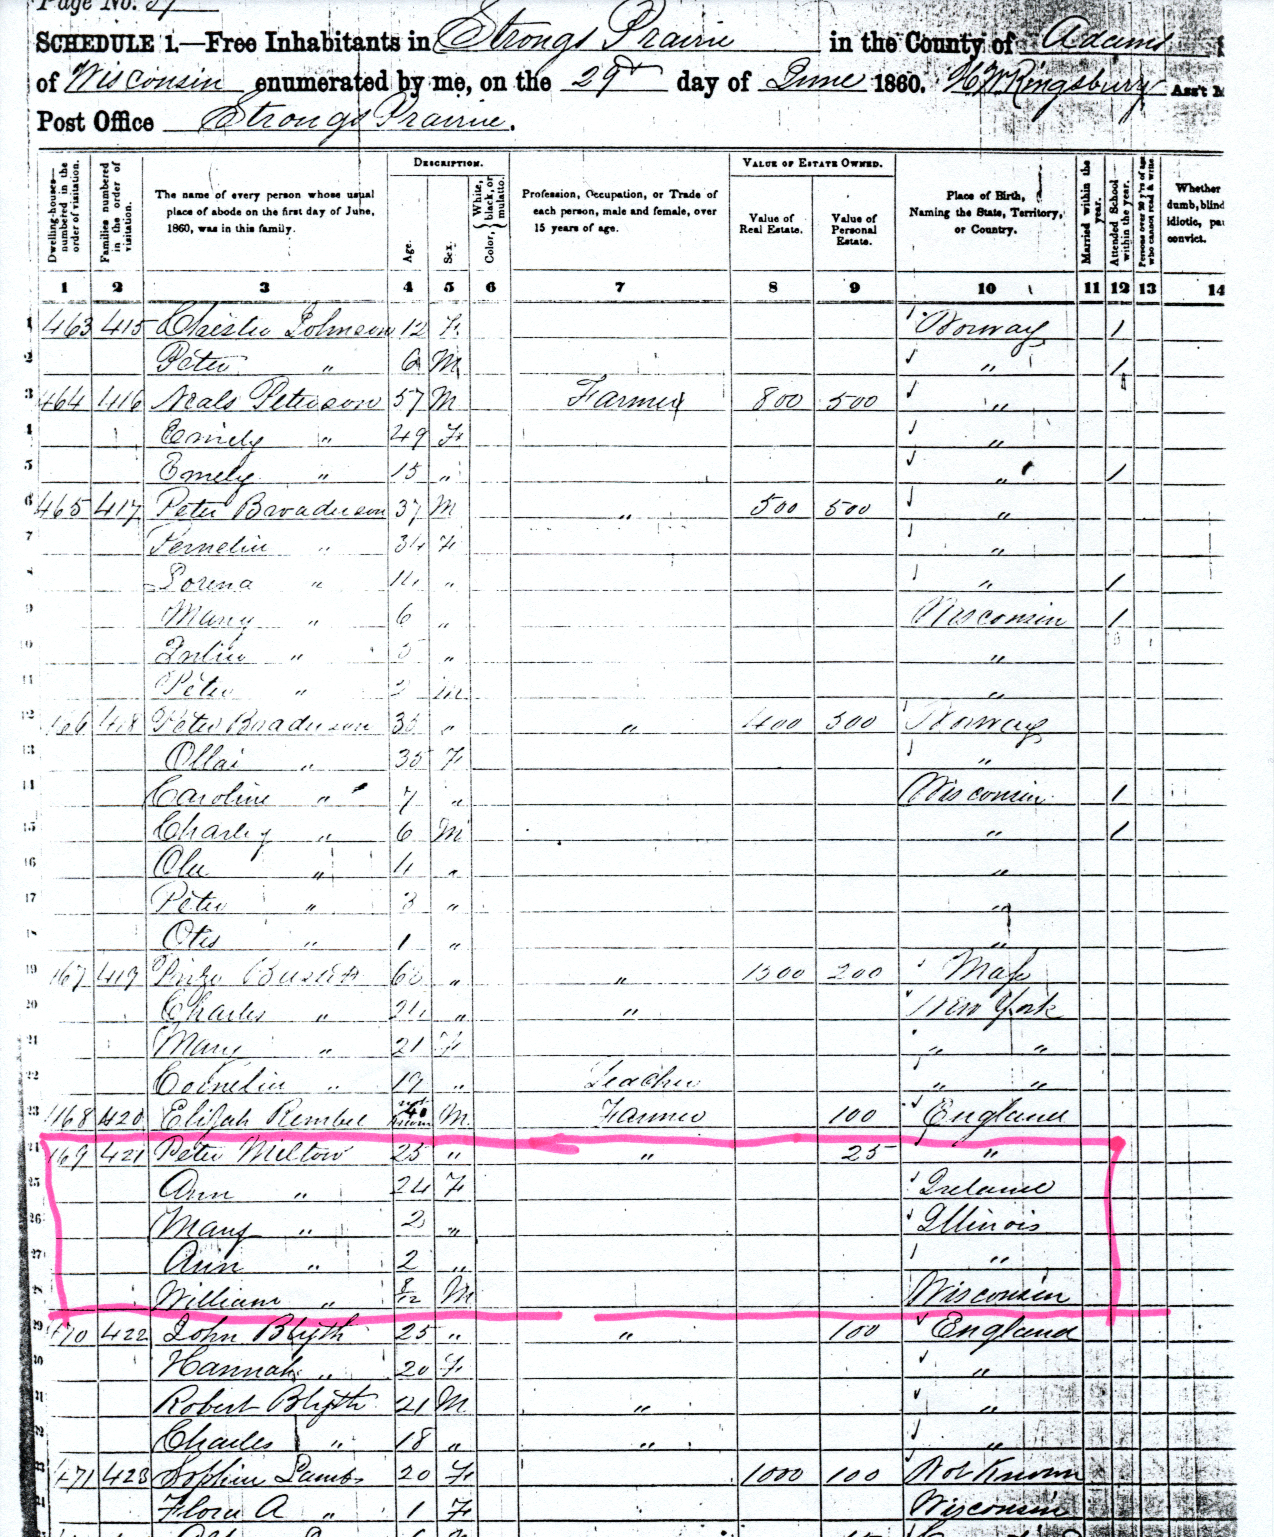 Page No. 57
SCHEDULE 1.—Free Inhabitants in Strongs Prairie in the County of Adams
of Wisconsin enumerated by me, on the 29th day of June 1860. Kingsbury Ass't M
Post Office Strongs Prairie.
DESCRIPTION. VALUE OF ESTATE OWNED.
Dwelling-houses—numbered in the order of visitation. Families numbered in the order of visitation. The name of every person whose usual place of abode on the first day of June, 1860, was in this family. Age. Sex. Color, White, black, or mulatto. Profession, Occupation, or Trade of each person, male and female, over 15 years of age. Value of Real Estate. Value of Personal Estate. Place of Birth, Naming the State, Territory, or Country. Married within the year. Attended School within the year. Persons over 20 y'rs of age who cannot read & write. Whether dumb, blind idiotic, pau convict.
1 2 3 4 5 6 7 8 9 10 11 12 13 14
1 463 415 Johnson 12 F. Norway /
2 Peter " 6 M " /
3 464 416 Neals Peterson 57 M Farmer 800 500 "
4 Emily " 49 F. "
5 Emely " 15 " " /
6 465 417 Peter 37 M " 500 500 "
7 " 34 F. "
8 Lorena " 11 " " /
9 Mary " 6 " Wisconsin /
10 " 5 " "
11 Peter " M "
12 466 418 Peter 35 " " 400 300 Norway
13 " 35 F. "
14 Caroline " 7 " Wisconsin /
15 Charley " 6 M " /
16 Ole " 4 " "
17 Peter " 3 " "
18 Otis " 1 " "
19 467 419 " " 200 Mass
20 Charles " 24 " " New York
21 Mary " 21 F. " "
22 Cornelia " 19 " Teacher " "
23 468 420 Elijah M. Farmer 100 England
24 469 421 Peter Milton 25 " " 25 "
25 Ann " 24 F. Ireland
26 Mary " " Illinois
27 Ann " 2 " "
28 William " 8/12 M Wisconsin
29 470 422 John Blyth 25 " " 100 England
30 Hannah " 20 F. "
31 Robert Blyth 21 M " "
32 Charles " 18 " " "
33 471 423 Sophia 20 F. 1000 100 Not Known
34 Flora A " 1 F Wisconsin